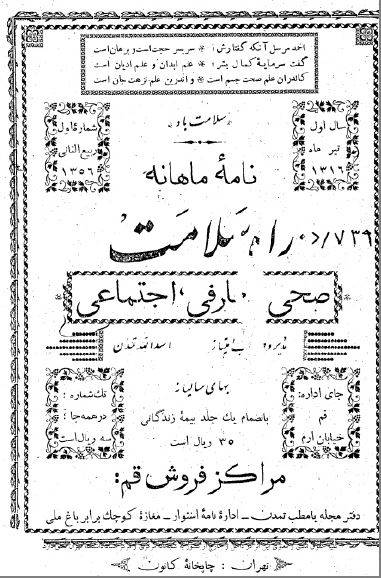 احمد مرسل آنکه گفتارش : سربسر حجت است و برهان است
گفت سرمایهٔ کمال بشر : علم ابدان و علم ادیان است
کاندران علم صحت جسم است و اندرین علم نزهت جان است
سلامت باد
سال اول
تیر ماه
۱۳۱۶
شماره اول
ربیع الثانی
۱۳۵۶
نامهٔ ماهانه
راه سلامت
۷۳۹/
صحی ارفی، اجتماعی
مدیر و امتیاز اسدالله تمدن
جای اداره:
قم
خیابان ارم
بهای سالیانه
بانضمام یک جلد بیمهٔ زندگانی
۳۵ ریال است
تک شماره :
در همه جا :
سه ریال است
مراکز فروش قم:
دفتر مجله یا مطب تمدن ـ ادارهٔ نامهٔ استوار ـ مغازهٔ کوچک برابر باغ ملی
تهران : چاپخانهٔ کانون